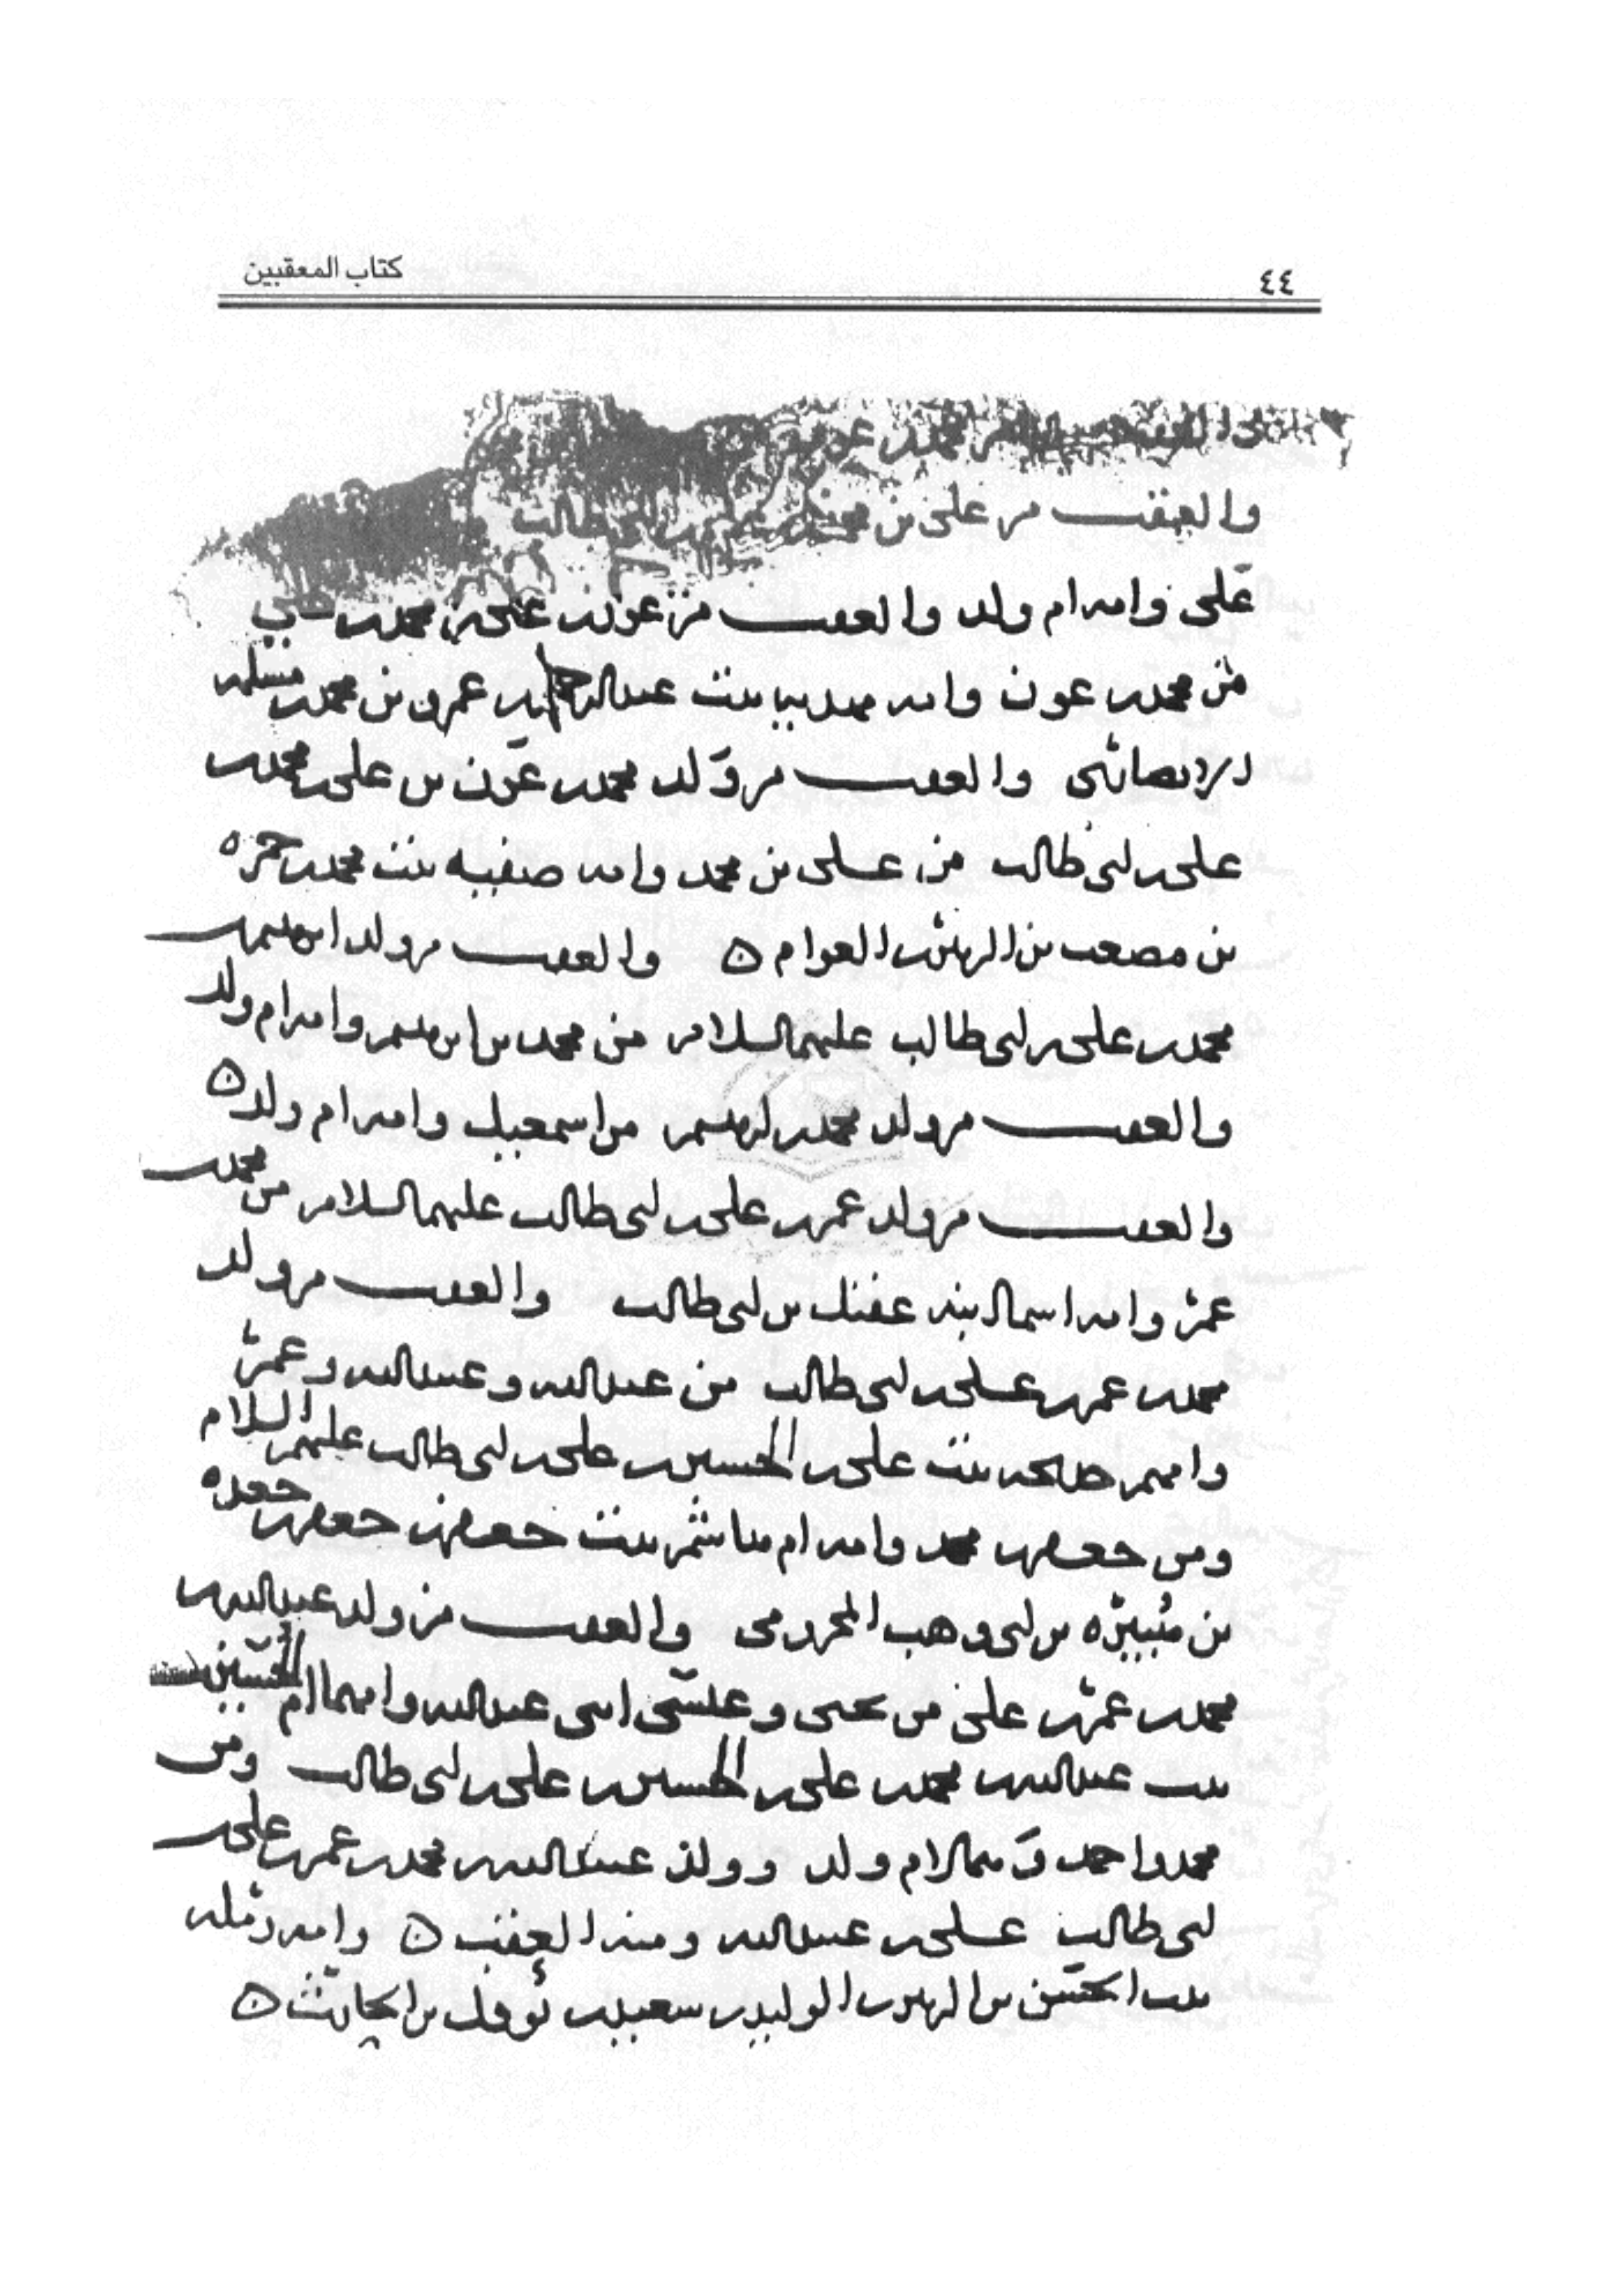 ٤٤
كتاب المعقبين
محمد بن
والعقب من علي بن محمد طالب
علي وامه ام ولد والعقب من عون بن علي بن محمد بن علي
من محمد بن عون وامه مهدية بنت عبد الرحمن بن عمرو بن محمد بن مسلمة
الانصاري والعقب من ولد محمد بن عون بن علي بن محمد بن
علي بن ابي طالب من علي بن محمد وامه صفية بنت محمد بن حمزة
بن مصعب بن الزبير بن العوام ٥ والعقب من ولد ابرهيم بن
محمد بن علي بن ابي طالب عليهم السلام من محمد بن ابرهيم وامه ام ولد
والعقب من ولد محمد بن ابرهيم من اسمعيل وامه ام ولد ٥
والعقب من ولد عمر بن علي بن ابي طالب عليهم السلام من محمد بن
عمر وامه اسما بنت عقيل بن ابي طالب والعقب من ولد
محمد بن عمر بن علي بن ابي طالب من عبد الله وعبيد الله وعمر
وامهم خديجة بنت علي بن الحسين بن علي بن ابي طالب عليهم السلام
ومن جعفر بن محمد وامه ام هاشم بنت جعفر بن جعفر بن جعدة
بن هبيرة بن ابي وهب المخزومي والعقب من ولد عبد الله بن
محمد بن عمر بن علي من يحيى وعيسى ابني عبد الله وامهما ام الحسين
بنت عبد الله بن محمد بن علي بن الحسين بن علي بن ابي طالب ومن
محمد واحمد وهما لام ولد وولد عبيد الله بن محمد بن عمر بن علي بن
ابي طالب علي بن عبيد الله ومنه العقب ٥ وامه رملة
بنت الحسن بن الزبير بن الوليد بن سعيد بن نوفل بن الحارث ٥